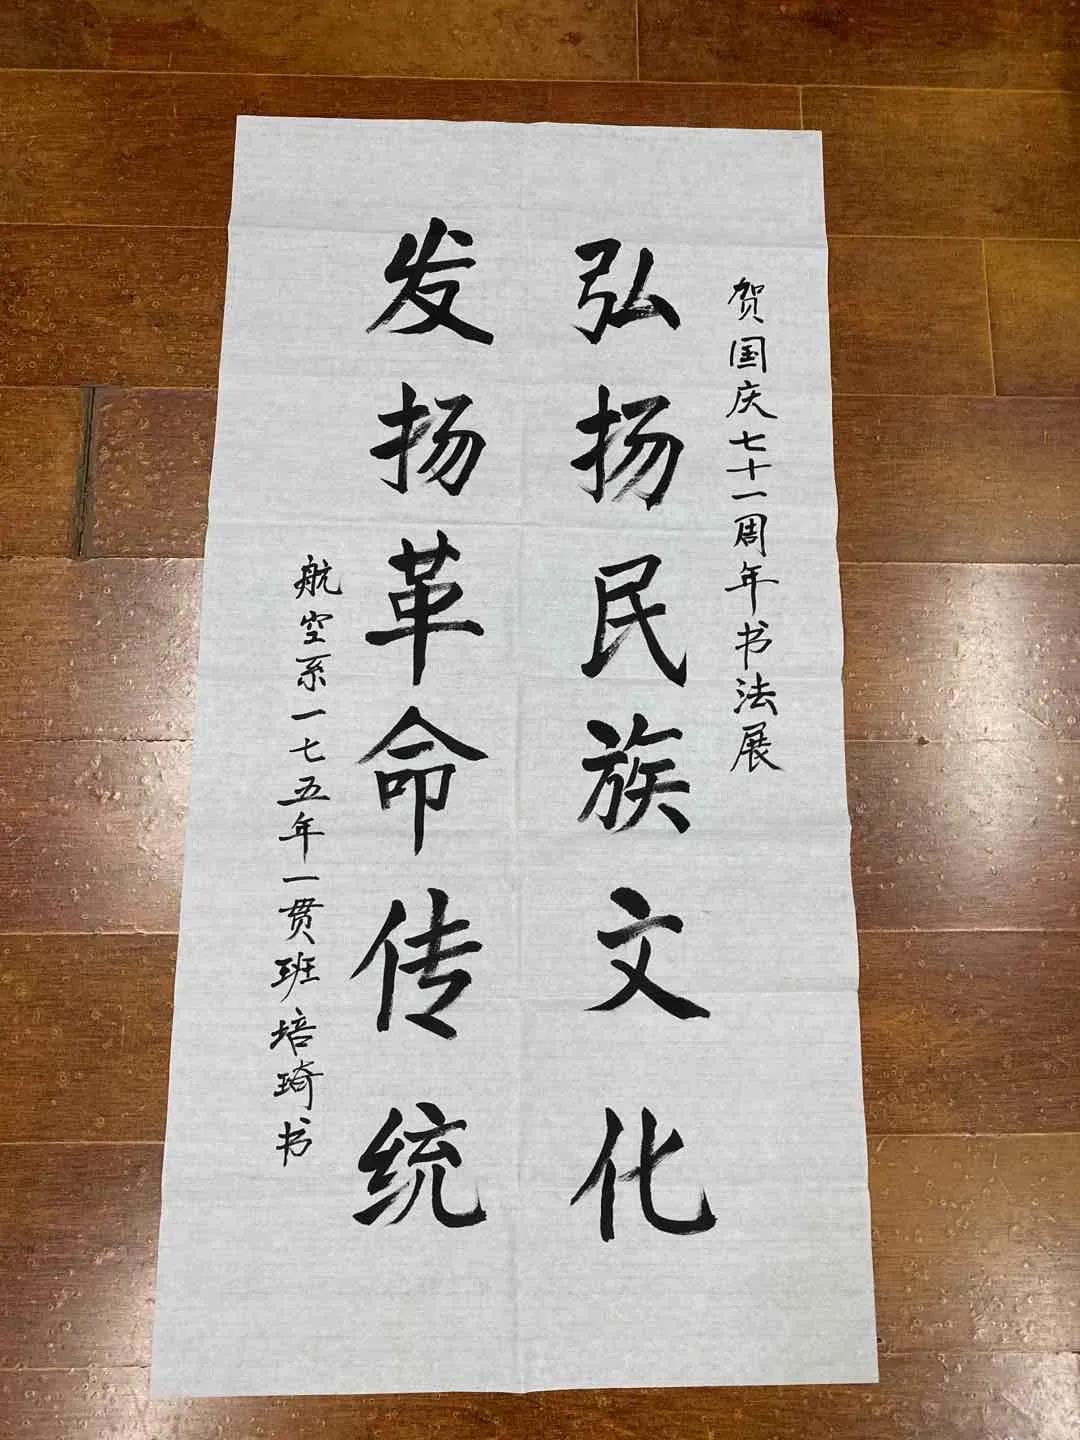 贺国庆七十一周年书法展
弘扬民族文化
发扬革命传统
航空系一七五年一贯班培琦书